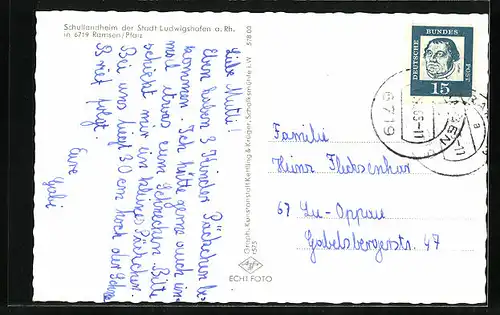 Schullandheim der Stadt Ludwigshafen a. Rh.
in 6719 Ramsen/Pfalz
Liebe Mutti!
Eben haben 3 Kinder Päckchen be-
kommen. Ich hätte gerne auch im-
mal etwas zum Schlecken. Bitte
schickt mir ein kleines Päckchen.
Bei uns liegt 30 cm hoch der Schnee
Brief folgt.
Eure
Gabi
518 03
Graph. Kunstanstalt Kettling & Krüger, Schalksmühle i. W.
1575
Agfa
ECHT FOTO
DEUTSCHE BUNDESPOST
15
6719
RAMSEN
a
Familie
Heinz Flickenhar
67 Lu-Oppau
Gabelsbergerstr. 47